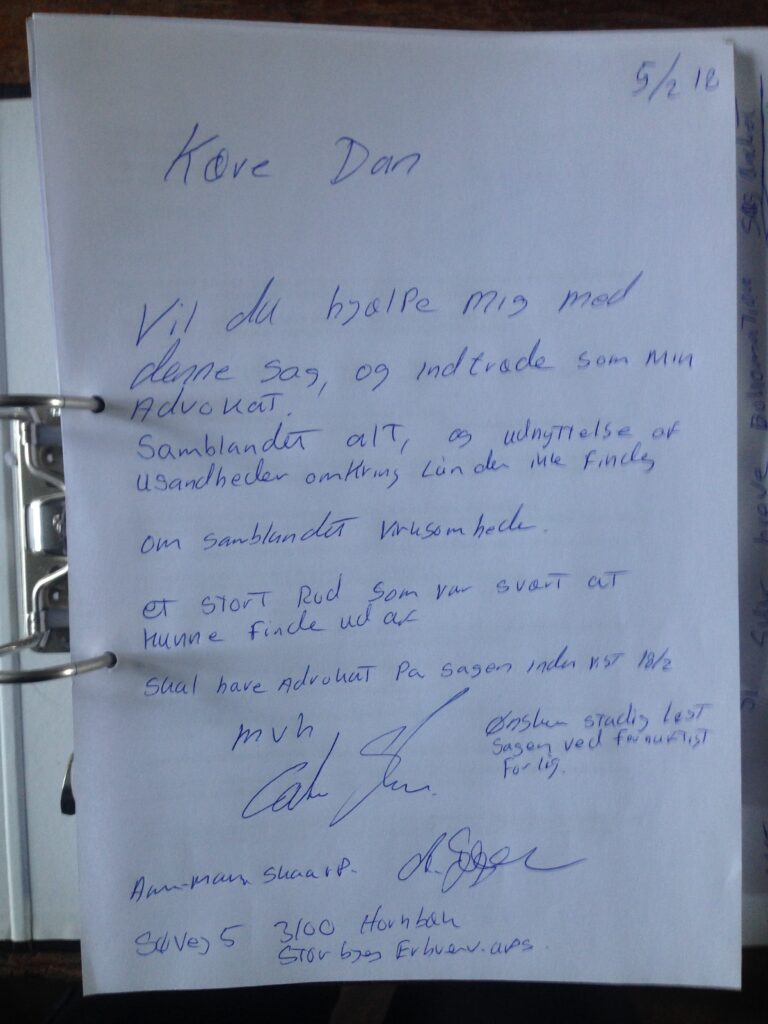 5/2 18
Kære Dan
Vil du hjælpe mig med
denne sag, og indtræde som min
Advokat.
Samblandet alt, og udnyttelse af
usandheder omkring Lån der ikke findes
om samblandet virksomhede.
et stort Rod som var svært at
kunne finde ud af
skal have Advokat På sagen inden 18/2
mvh
Ønsker stadig løst
sagen ved fornuftigt
forlig.
Søvej 5 3100 Hornbæk
Storbyens Erhverv. aps.